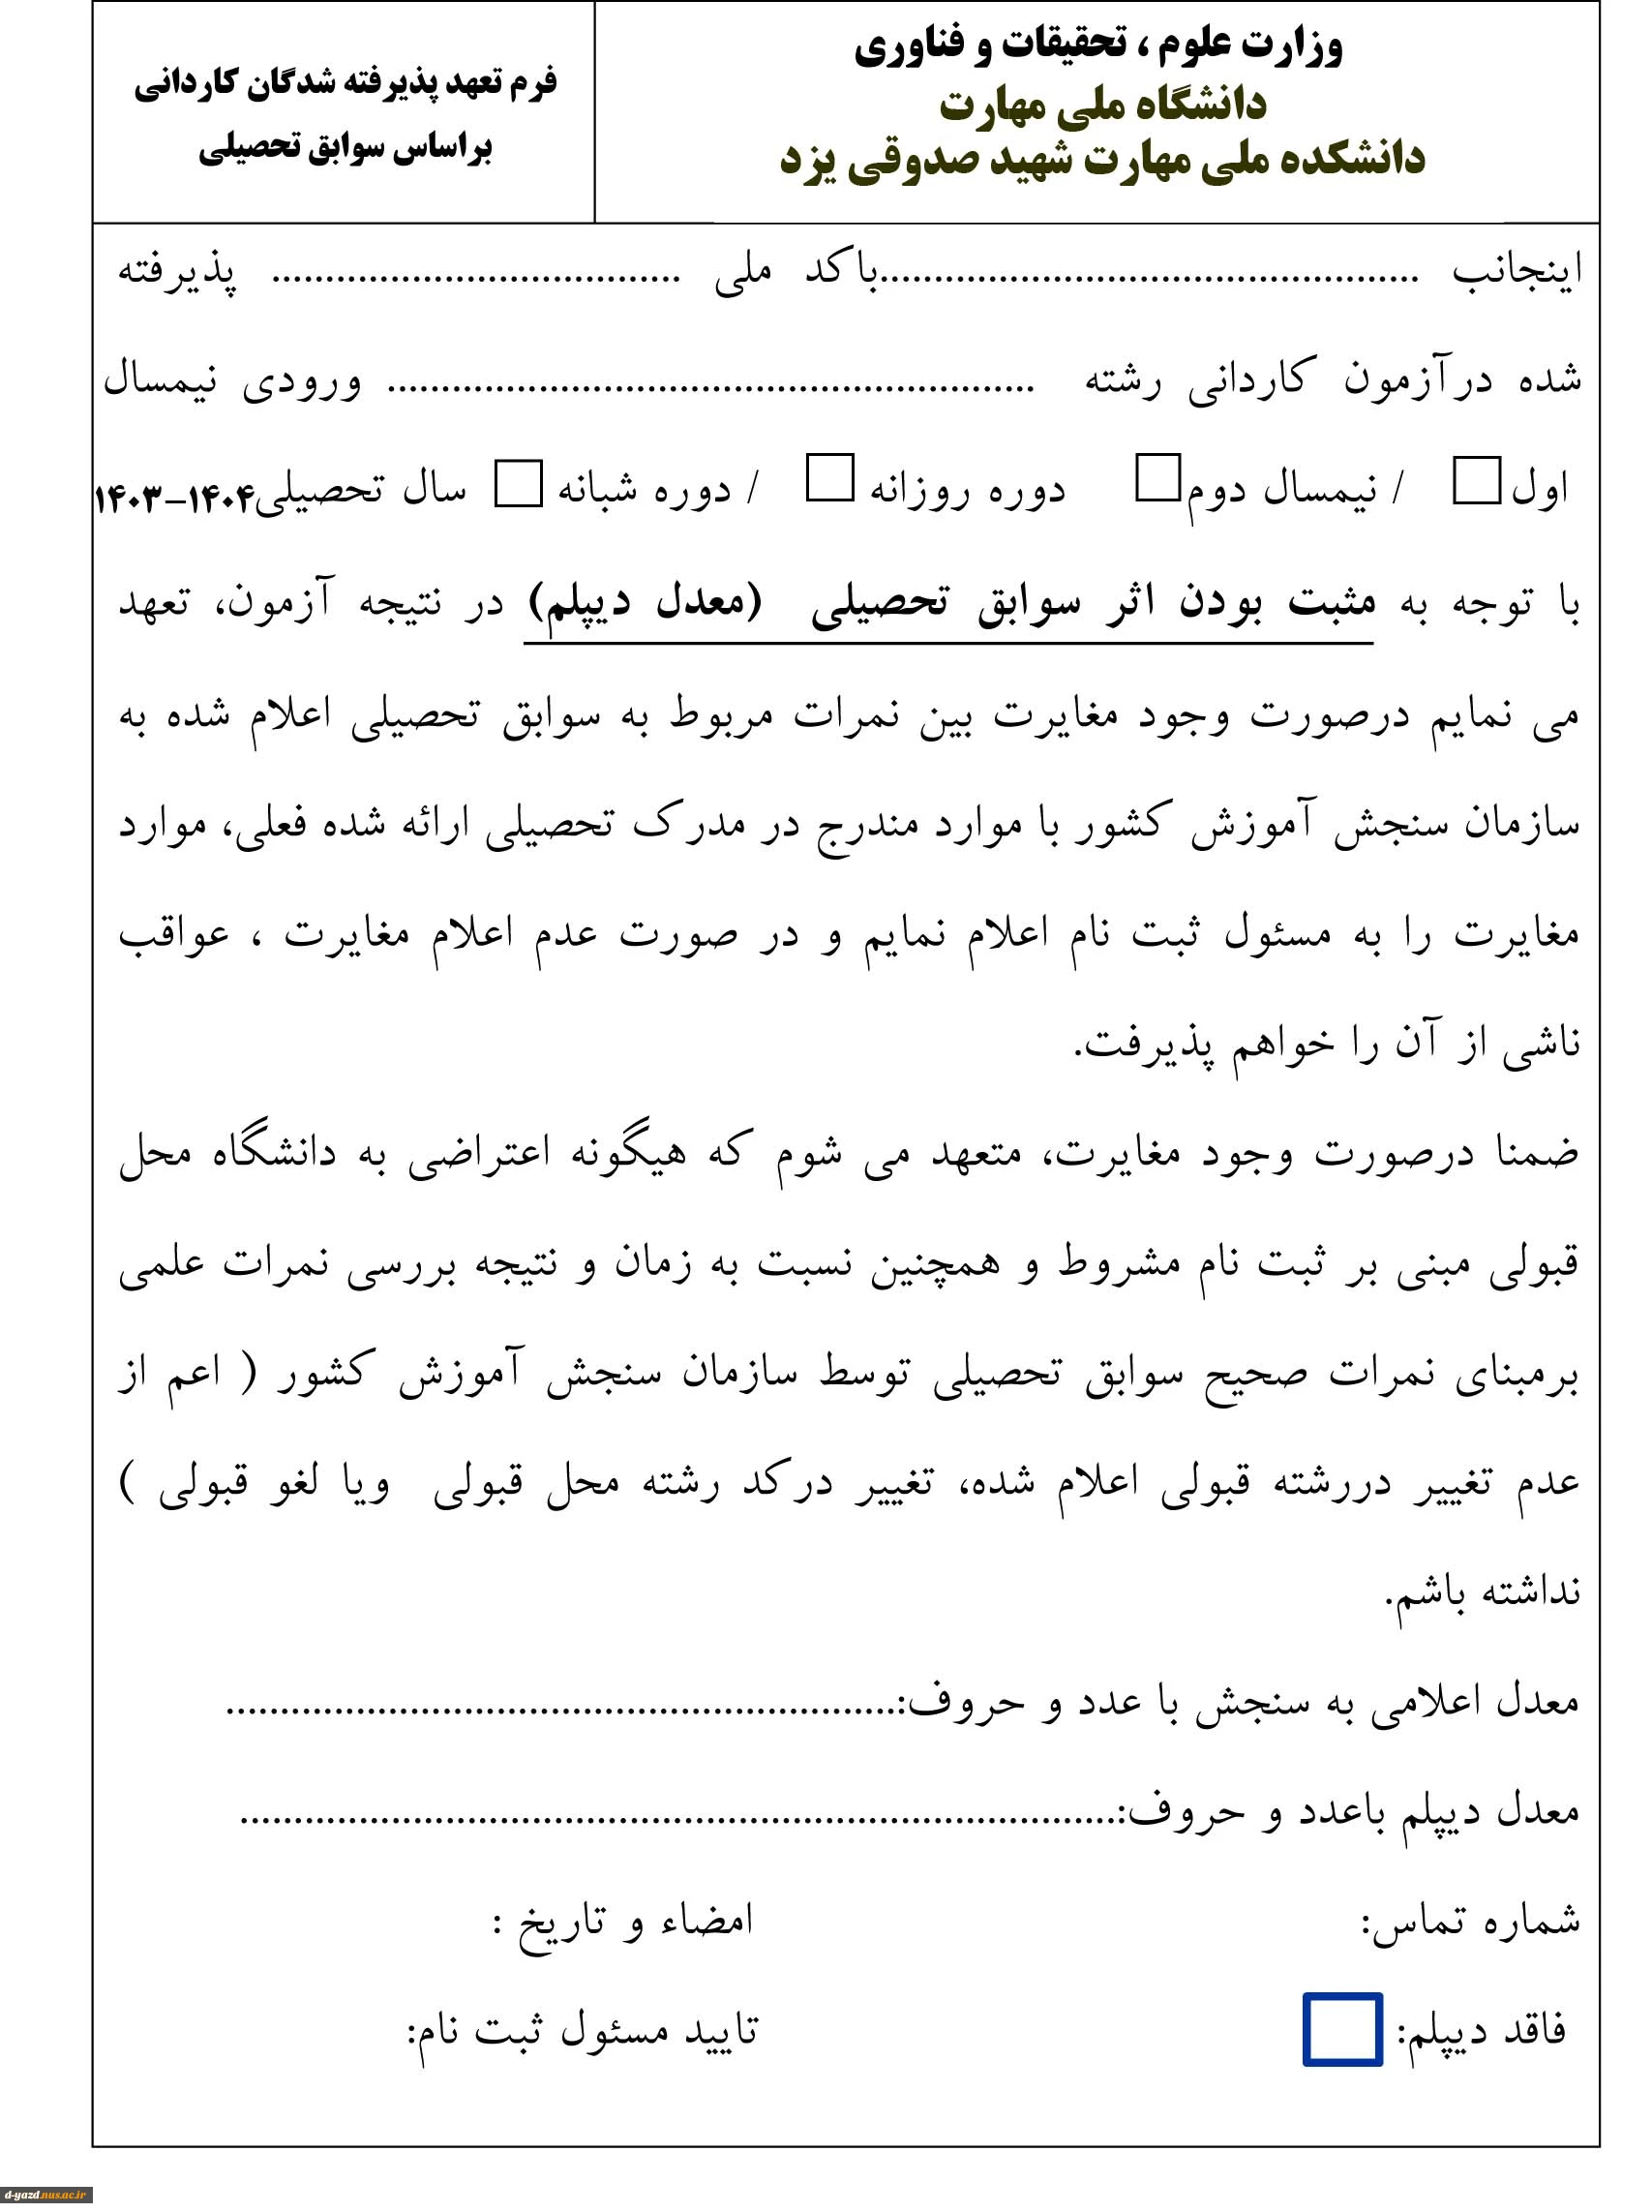 وزارت علوم ، تحقیقات و فناوری
دانشگاه ملی مهارت
دانشکده ملی مهارت شهید صدوقی یزد
فرم تعهد پذیرفته شدگان کاردانی
براساس سوابق تحصیلی
اینجانب ..................................................باکد ملی ...................................... پذیرفته
شده درآزمون کاردانی رشته ............................................................ ورودی نیمسال
اول□ / نیمسال دوم□ دوره روزانه □ / دوره شبانه □ سال تحصیلی۱۴۰۴-۱۴۰۳
با توجه به مثبت بودن اثر سوابق تحصیلی (معدل دیپلم) در نتیجه آزمون، تعهد
می نمایم درصورت وجود مغایرت بین نمرات مربوط به سوابق تحصیلی اعلام شده به
سازمان سنجش آموزش کشور با موارد مندرج در مدرک تحصیلی ارائه شده فعلی، موارد
مغایرت را به مسئول ثبت نام اعلام نمایم و در صورت عدم اعلام مغایرت ، عواقب
ناشی از آن را خواهم پذیرفت.
ضمنا درصورت وجود مغایرت، متعهد می شوم که هیگونه اعتراضی به دانشگاه محل
قبولی مبنی بر ثبت نام مشروط و همچنین نسبت به زمان و نتیجه بررسی نمرات علمی
برمبنای نمرات صحیح سوابق تحصیلی توسط سازمان سنجش آموزش کشور ( اعم از
عدم تغییر دررشته قبولی اعلام شده، تغییر درکد رشته محل قبولی ویا لغو قبولی )
نداشته باشم.
معدل اعلامی به سنجش با عدد و حروف:..............................................................
معدل دیپلم باعدد و حروف:.................................................................................
شماره تماس: امضاء و تاریخ :
فاقد دیپلم: □ تایید مسئول ثبت نام:
d-yazd.nus.ac.ir